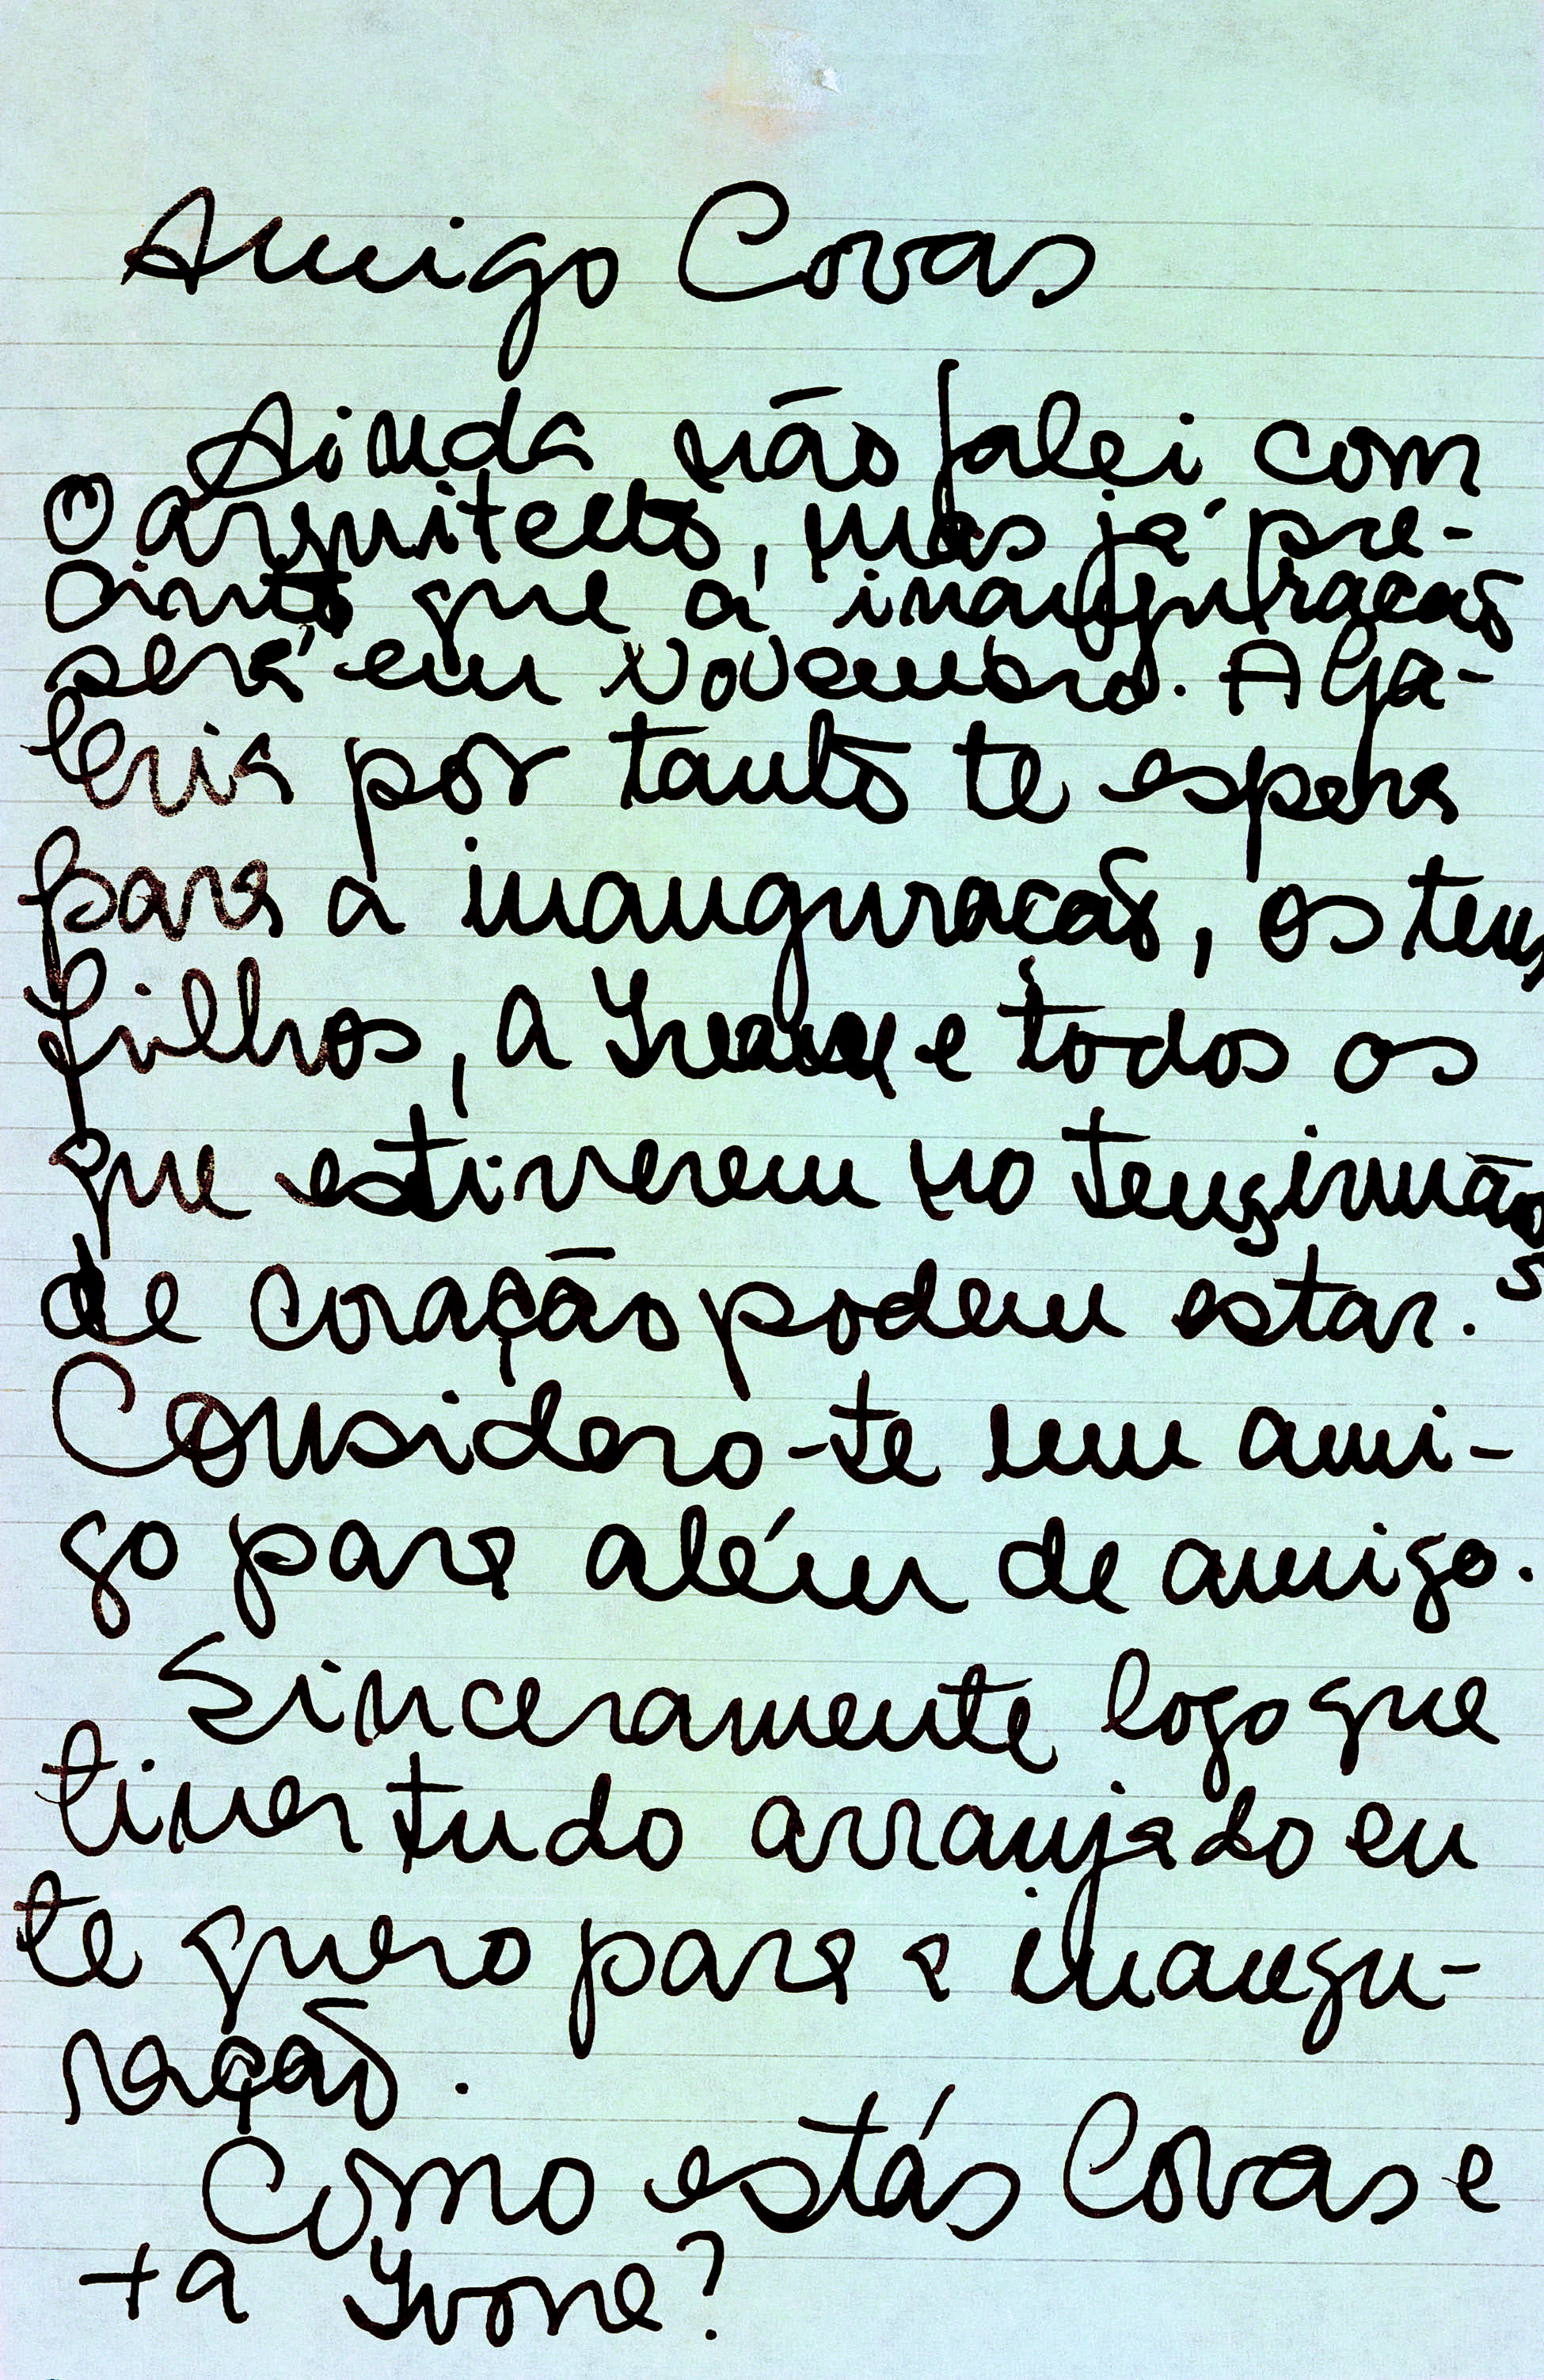 Amigo Covas
Ainda não falei com
o arquitecto, mas já pre-
sinto que a inauguracao
será em Novembro. A Ga-
leria por tanto te espera
para a inauguracaõ, os teus
filhos, a Yvone e todos os
que estiverem no teus irmãos
de coração podem estar.
Considero-te um ami-
go para além de amigo.
Sinceramente logo que
tiver tudo arranjado eu
te quero para a inaugu-
ração.
Como estás Covas e
+a Yvone?